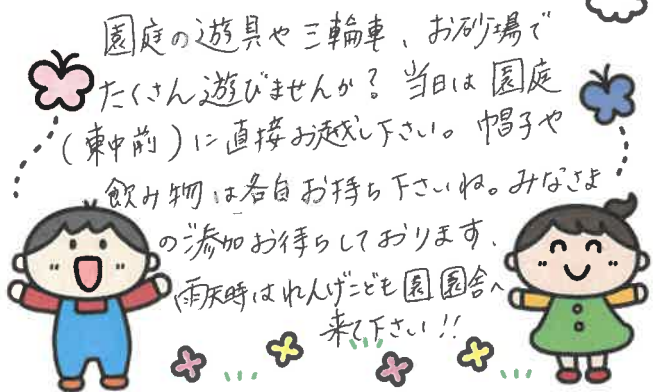 園庭の遊具や三輪車、お砂場で
たくさん遊びませんか？当日は園庭
(東中前)に直接お越し下さい。帽子や
飲み物は各自お持ち下さいね。みなさま
の参加お待ちしております、
雨天時はれんげこども園園舎へ
来て下さい!!